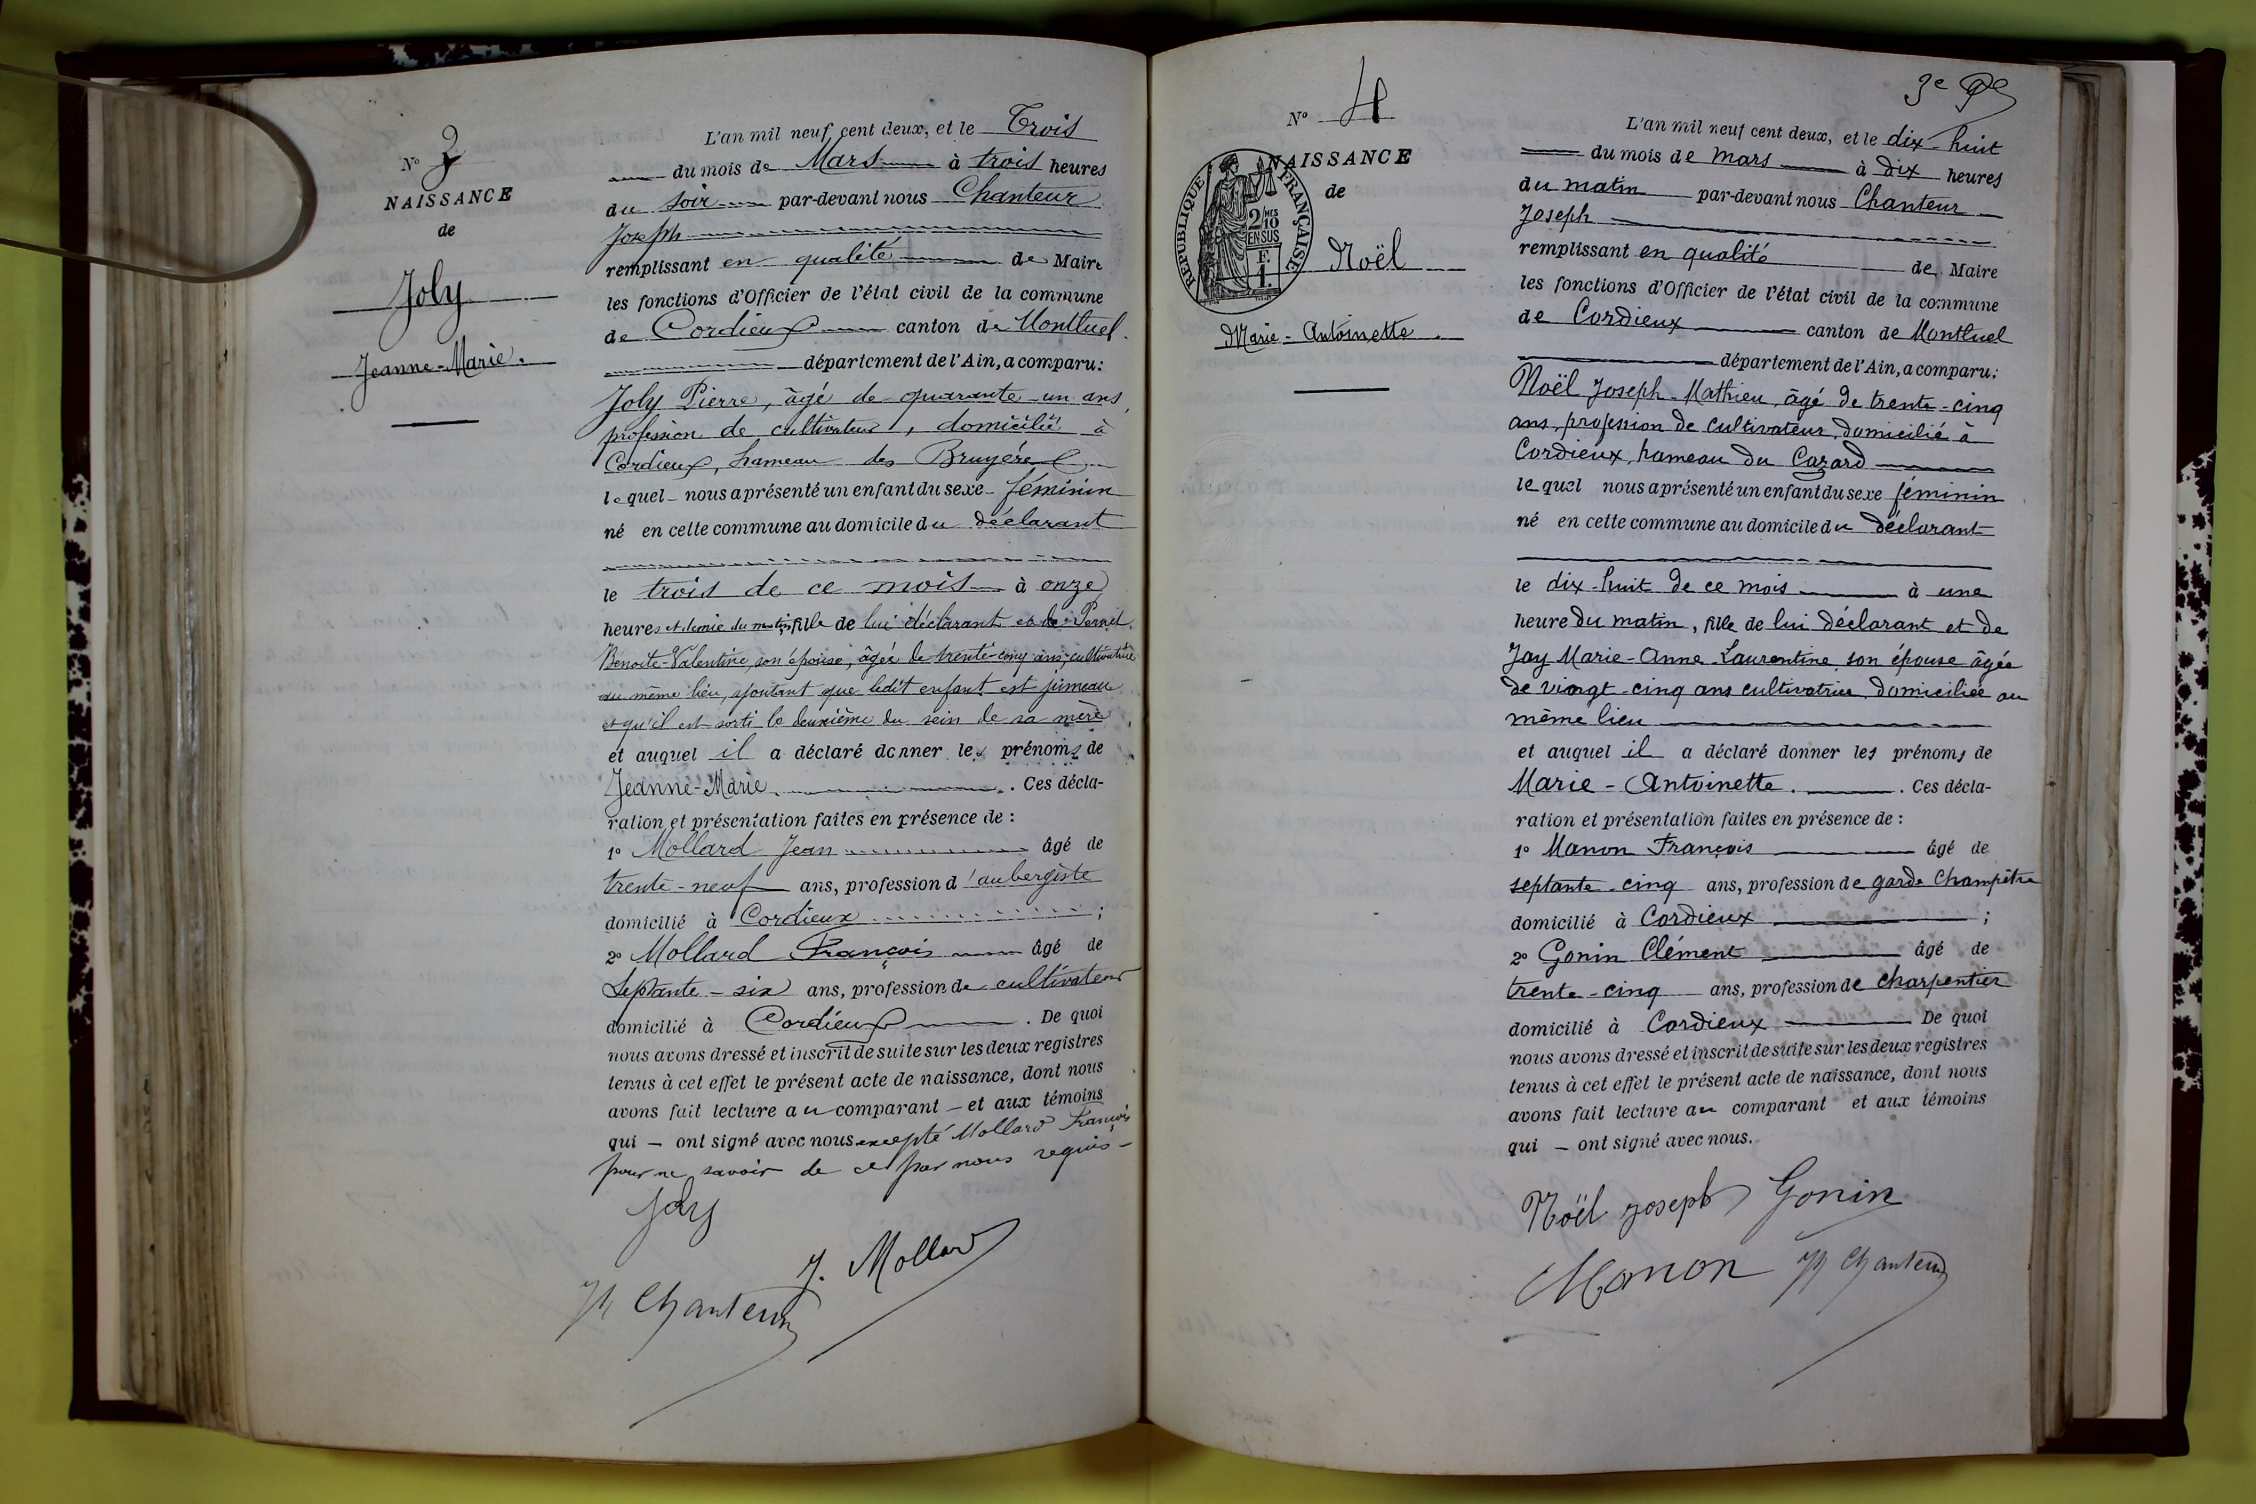 N° 3
NAISSANCE
de
Joly
Jeanne-Marie.
L'an mil neuf cent deux, et le Trois
du mois de Mars à trois heures
du soir par-devant nous Chanteur
Joseph
remplissant en qualité de Maire
les fonctions d'Officier de l'état civil de la commune
de Cordieux canton de Montluel.
département de l'Ain, a comparu:
Joly Pierre, âgé de quarante-un ans,
profession de cultivateur, domicilié à
Cordieux, hameau des Bruyères
lequel nous a présenté un enfant du sexe féminin
né en cette commune au domicile du déclarant
le trois de ce mois à onze
heures et demie du matin, fille de lui déclarant et de Pernet
Benoîte-Valentine, son épouse, âgée de trente-cinq ans, cultivatrice
au même lieu, ajoutant que ledit enfant est jumeau
et qu'il est sorti le deuxième du sein de sa mère
et auquel il a déclaré donner les prénoms de
Jeanne-Marie. Ces décla-
ration et présentation faites en présence de :
1° Mollard Jean âgé de
trente-neuf ans, profession d'aubergiste
domicilié à Cordieux ;
2° Mollard François âgé de
septante-six ans, profession de cultivateur
domicilié à Cordieux. De quoi
nous avons dressé et inscrit de suite sur les deux registres
tenus à cet effet le présent acte de naissance, dont nous
avons fait lecture au comparant et aux témoins
qui ont signé avec nous excepté Mollard François
pour ne savoir de ce par nous requis
Joly
J. Mollard
Jh Chanteur
3e
N° 4
NAISSANCE
de
RÉPUBLIQUE FRANÇAISE
2/10 MES
EN SUS
F.
1.
Noël
Marie-Antoinette.
L'an mil neuf cent deux, et le dix-huit
du mois de mars à dix heures
du matin par-devant nous Chanteur
Joseph
remplissant en qualité de Maire
les fonctions d'Officier de l'état civil de la commune
de Cordieux canton de Montluel
département de l'Ain, a comparu:
Noël Joseph-Mathieu, âgé de trente-cinq
ans, profession de cultivateur, domicilié à
Cordieux, hameau du Cazard
lequel nous a présenté un enfant du sexe féminin
né en cette commune au domicile du déclarant
le dix-huit de ce mois à une
heure du matin, fille de lui déclarant et de
Jay Marie-Anne-Laurentine, son épouse âgée
de vingt-cinq ans cultivatrice, domiciliée au
même lieu
et auquel il a déclaré donner les prénoms de
Marie-Antoinette. Ces décla-
ration et présentation faites en présence de :
1° Manon François âgé de
septante-cinq ans, profession de garde champêtre
domicilié à Cordieux ;
2° Gonin Clément âgé de
trente-cinq ans, profession de charpentier
domicilié à Cordieux De quoi
nous avons dressé et inscrit de suite sur les deux registres
tenus à cet effet le présent acte de naissance, dont nous
avons fait lecture au comparant et aux témoins
qui ont signé avec nous.
Noël Joseph Gonin
Manon Jh Chanteur